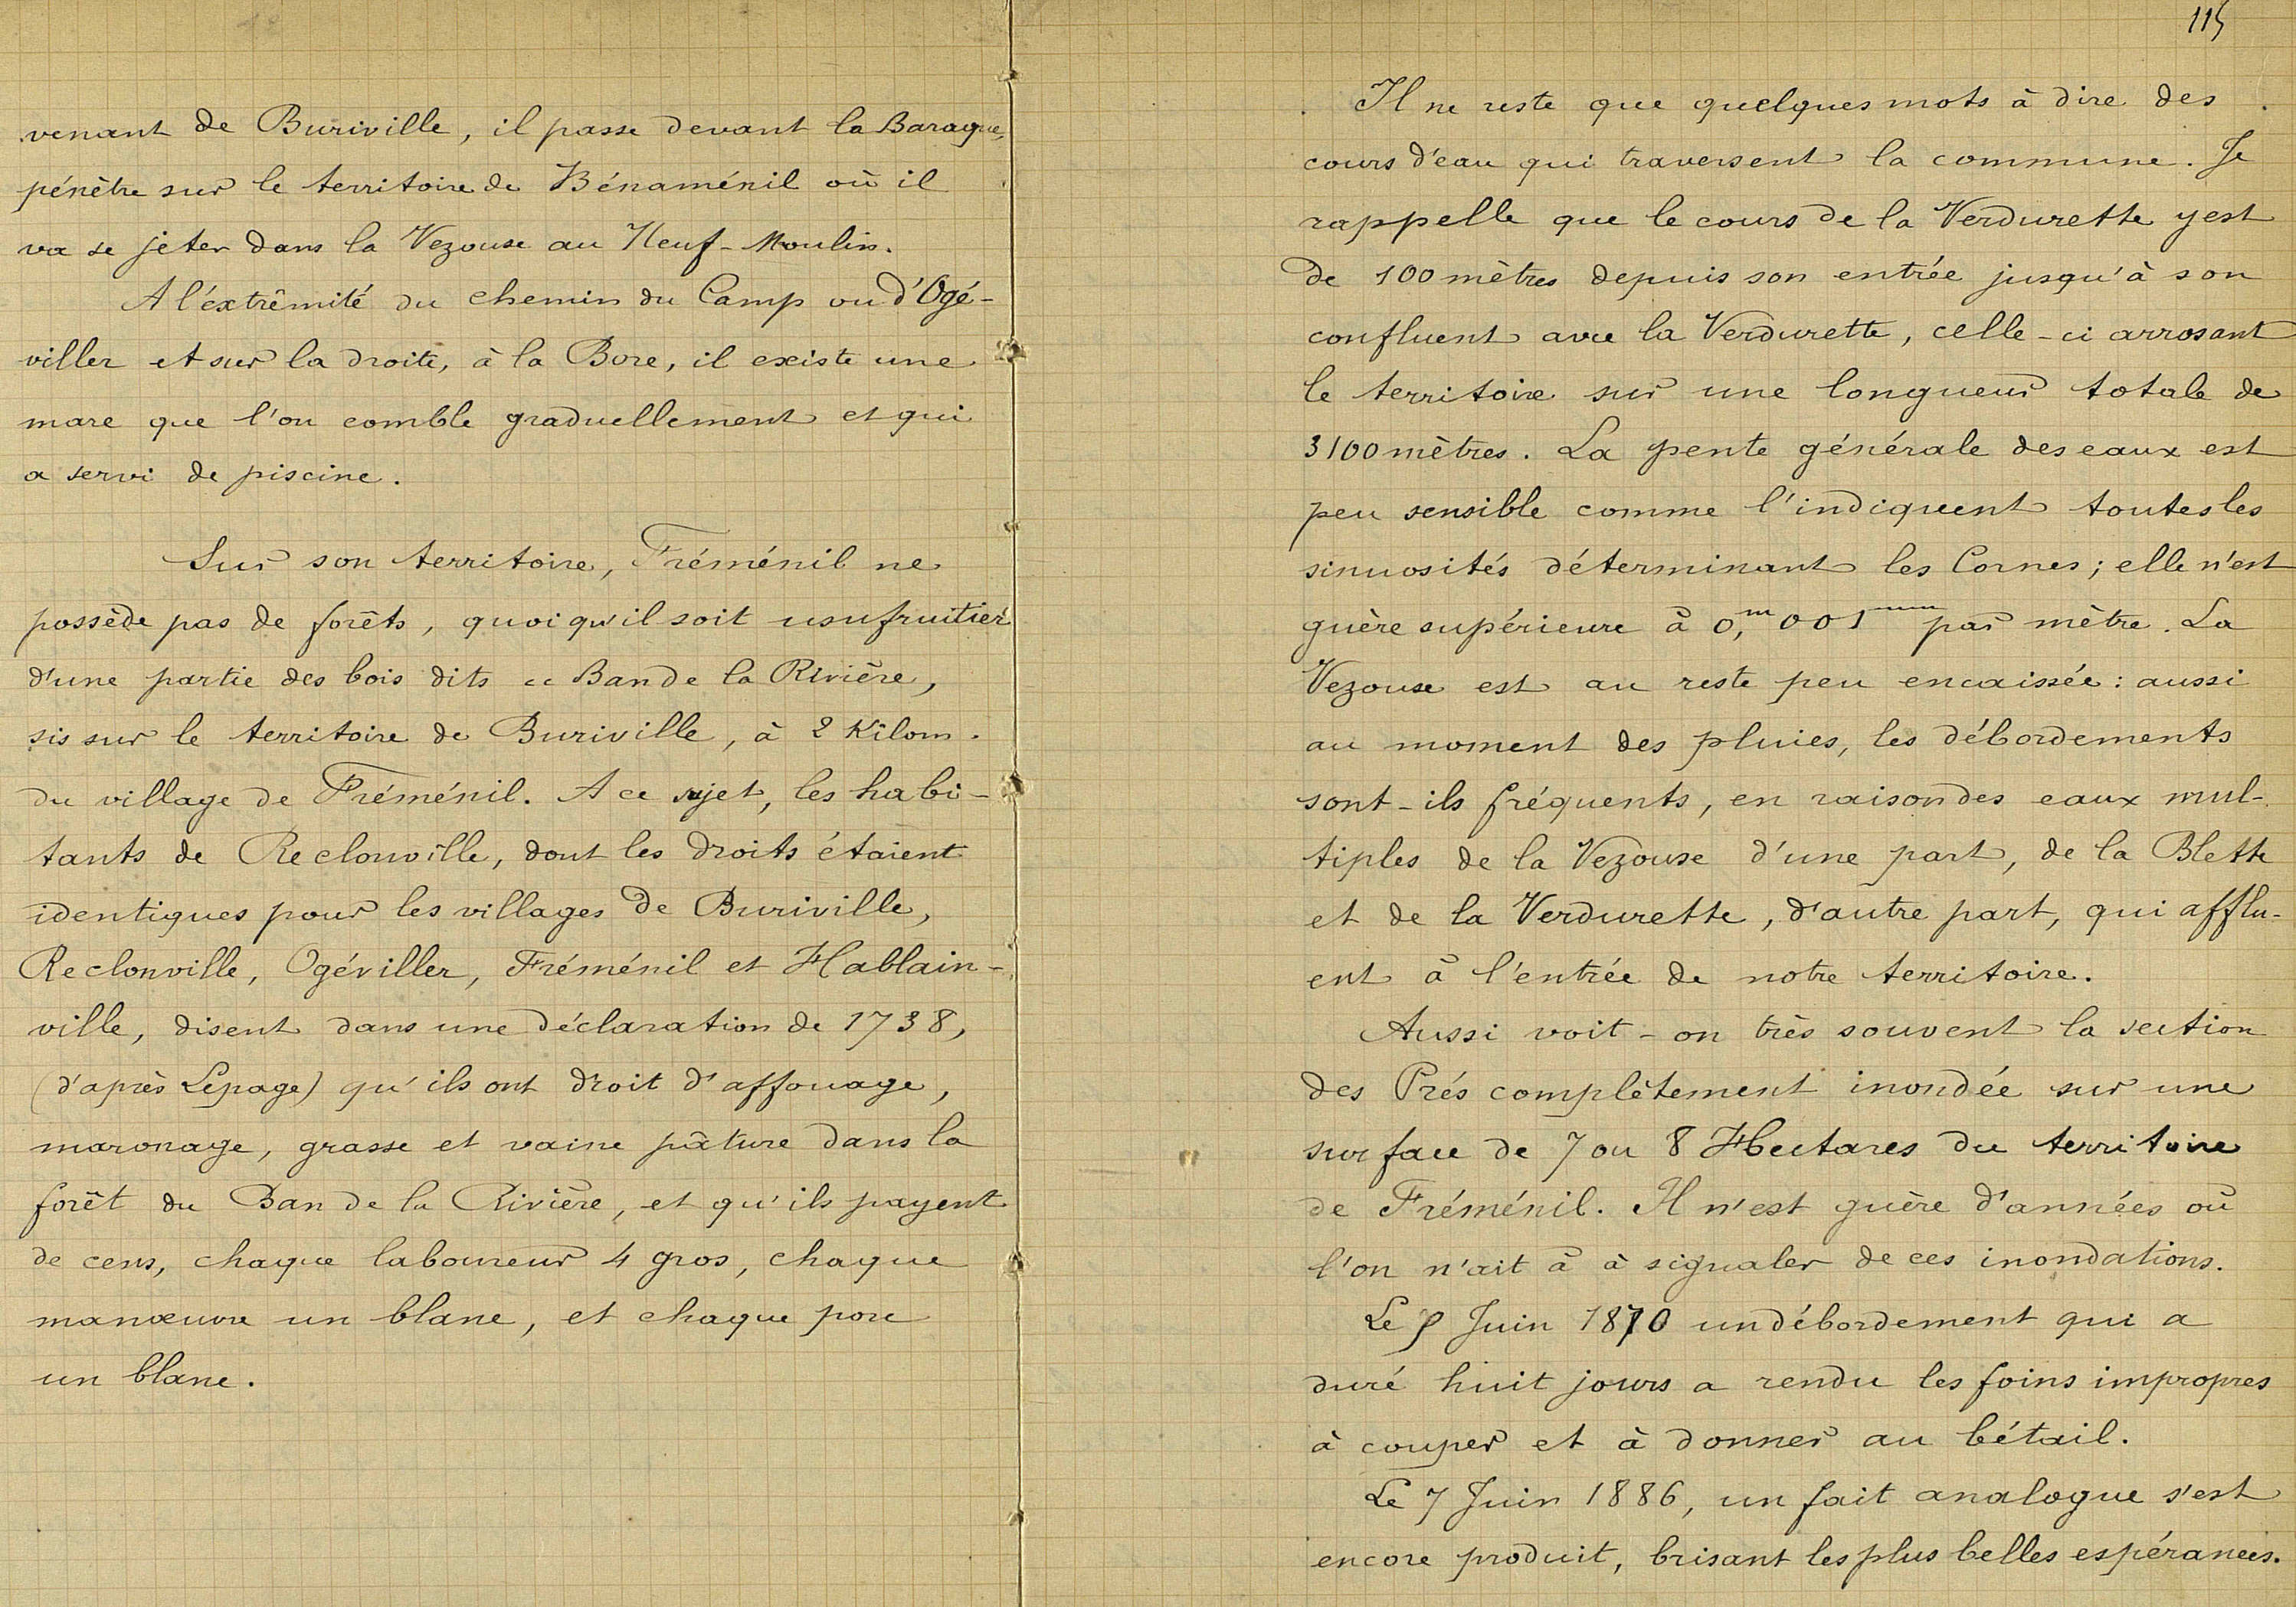 venant de Buriville, il passe devant la Baraque,
pénètre sur le territoire de Bénaménil où il
va se jeter dans la Vezouse au Neuf-Moulin.
A l'éxtrêmité du chemin du Camp ou d'Ogé-
viller et sur la droite, à la Bore, il existe une
mare que l'on comble graduellement et qui
a servi de piscine.
Sur son territoire, Fréménil ne
possède pas de forêts, quoiqu'il soit usufruitier
d'une partie des bois dits « Ban de la Rivière,
sis sur le territoire de Buriville, à 2 Kilom.
du village de Fréménil. A ce sujet, les habi-
tants de Reclonville, dont les droits étaient
identiques pour les villages de Buriville,
Reclonville, Ogéviller, Fréménil et Hablain-
ville, disent dans une déclaration de 1738,
(d'après Lepage) qu'ils ont droit d'affouage,
maronage, grasse et vaine pâture dans la
forêt du Ban de la Rivière, et qu'ils payent
de cens, chaque laboureur 4 gros, chaque
manœuvre un blanc, et chaque porc
un blanc.
115
Il ne reste que quelques mots à dire des
cours d'eau qui traversent la commune. Je
rappelle que le cours de la Verdurette y est
de 100 mètres depuis son entrée jusqu'à son
confluent avec la Verdurette, celle-ci arrosant
le territoire sur une longueur totale de
3100 mètres. La pente générale des eaux est
peu sensible comme l'indiquent toutes les
sinuosités déterminant les Cornes ; elle n'est
guère supérieure à 0,m001mm par mètre. La
Vezouse est au reste peu encaissée : aussi
au moment des pluies, les débordements
sont-ils fréquents, en raison des eaux mul-
tiples de la Vezouse d'une part, de la Blette
et de la Verdurette, d'autre part, qui afflu-
ent à l'entrée de notre territoire.
Aussi voit-on très souvent la section
des Prés complètement inondée sur une
surface de 7 ou 8 Hectares du territoire
de Fréménil. Il n'est guère d'années où
l'on n'ait à à signaler de ces inondations.
Le Juin 1870 un débordement qui a
duré huit jours a rendu les foins impropres
à couper et à donner au bétail.
Le 7 Juin 1886, un fait analogue s'est
encore produit, brisant les plus belles espérances.